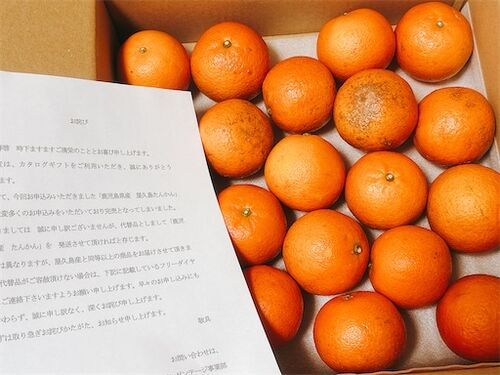 お詫び
拝啓 時下ますますご清栄のこととお喜び申し上げます。
は、カタログギフトをご利用いただき、誠にありがとう
ます。
て、今回お申込みいただきました「鹿児島県産 屋久島たんかん」
変多くのお申込みをいただいており完売となってしまいました。
ましては 誠に申し訳ございませんが、代替品としまして「鹿児
産 たんかん」を 発送させて頂ければと存じます。
は異なりますが、屋久島産と同等以上の商品をお届けさせて頂きま
代替品がご容赦頂けない場合は、下記に記載しているフリーダイヤ
ご連絡下さいますようお願い申し上げます。早々のお申し込みにも
わらず、誠に申し訳なく、深くお詫び申し上げます。
ずは取り急ぎお詫びかたがた、お知らせ申し上げます。
敬具
お問い合わせは、
ンテージ事業部